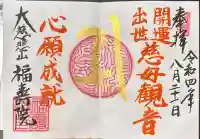 奉拝
令和四年
八月二十一日
開運
出世
慈母観音
心願成就
大慈悲山
福寿院